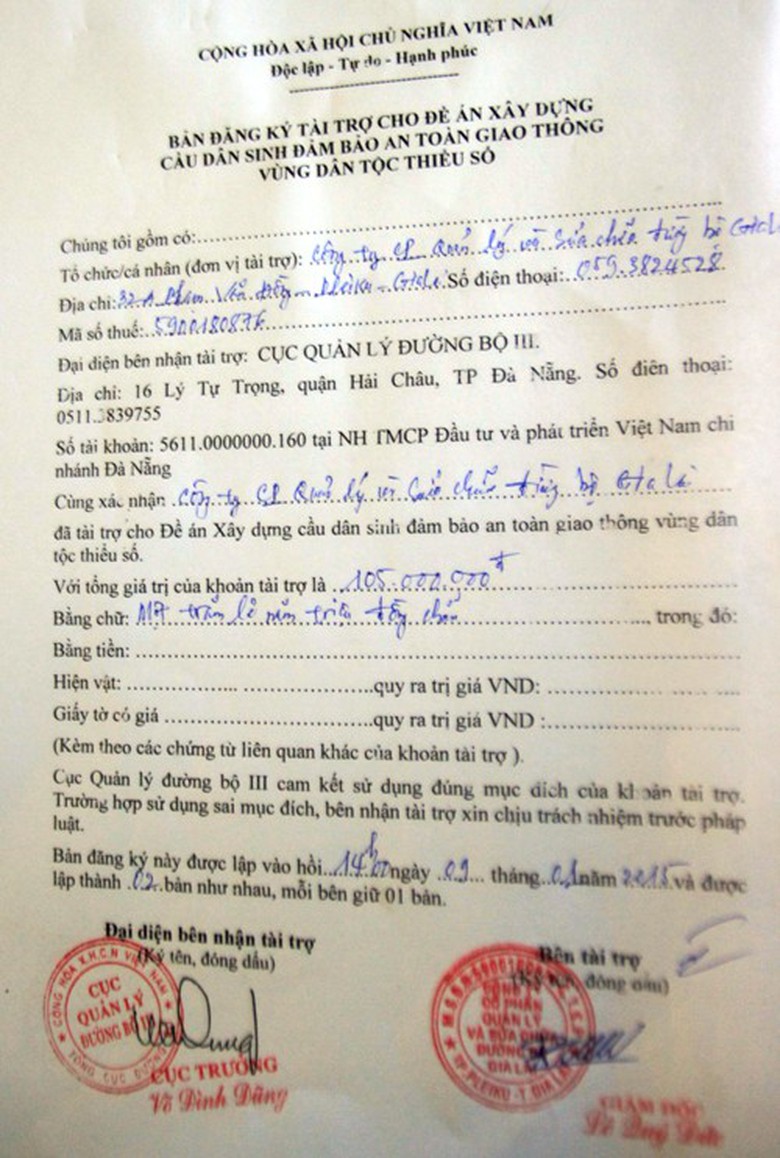 CỘNG HÒA XÃ HỘI CHỦ NGHĨA VIỆT NAM
Độc lập - Tự do - Hạnh phúc
BẢN ĐĂNG KÝ TÀI TRỢ CHO ĐỀ ÁN XÂY DỰNG
CẦU DÂN SINH ĐẢM BẢO AN TOÀN GIAO THÔNG
VÙNG DÂN TỘC THIỂU SỐ
Chúng tôi gồm có:
Tổ chức/cá nhân (đơn vị tài trợ): Công ty CP Quản lý và Sửa chữa đường bộ Gia Lai
Địa chỉ: 32A Phạm Văn Đồng - Pleiku - Gia Lai Số điện thoại: 059.3824528
Mã số thuế: 5900180876
Đại diện bên nhận tài trợ: CỤC QUẢN LÝ ĐƯỜNG BỘ III.
Địa chỉ: 16 Lý Tự Trọng, quận Hải Châu, TP Đà Nẵng. Số điên thoại:
0511.3839755
Số tài khoản: 5611.0000000.160 tại NH TMCP Đầu tư và phát triển Việt Nam chi
nhánh Đà Nẵng
Cùng xác nhận Công ty CP Quản lý và Sửa chữa đường bộ Gia Lai
đã tài trợ cho Đề án Xây dựng cầu dân sinh đảm bảo an toàn giao thông vùng dân
tộc thiểu số.
Với tổng giá trị của khoản tài trợ là 105.000.000đ
Bằng chữ: Một trăm lẻ năm triệu đồng chẵn, trong đó:
Bằng tiền:
Hiện vật: quy ra trị giá VND:
Giấy tờ có giá quy ra trị giá VND :
(Kèm theo các chứng từ liên quan khác của khoản tài trợ ).
Cục Quản lý đường bộ III cam kết sử dụng đúng mục đích của khoản tài trợ.
Trường hợp sử dụng sai mục đích, bên nhận tài trợ xin chịu trách nhiệm trước pháp
luật.
Bản đăng ký này được lập vào hồi 14h00 ngày 09 tháng 01 năm 2015 và được
lập thành 02 bản như nhau, mỗi bên giữ 01 bản.
Đại diện bên nhận tài trợ
(Ký tên, đóng dấu)
Bên tài trợ
(Ký tên, đóng dấu)
CỘNG HÒA X.H.C.N VIỆT NAM
CỤC
QUẢN LÝ
ĐƯỜNG BỘ III
TỔNG CỤC ĐƯỜNG
CỤC TRƯỞNG
Võ Đình Dũng
CỔ PHẦN
QUẢN LÝ
VÀ SỬA CHỮA
ĐƯỜNG
GIA LAI
TP.PLEIKU - T.GIA LAI
GIÁM ĐỐC